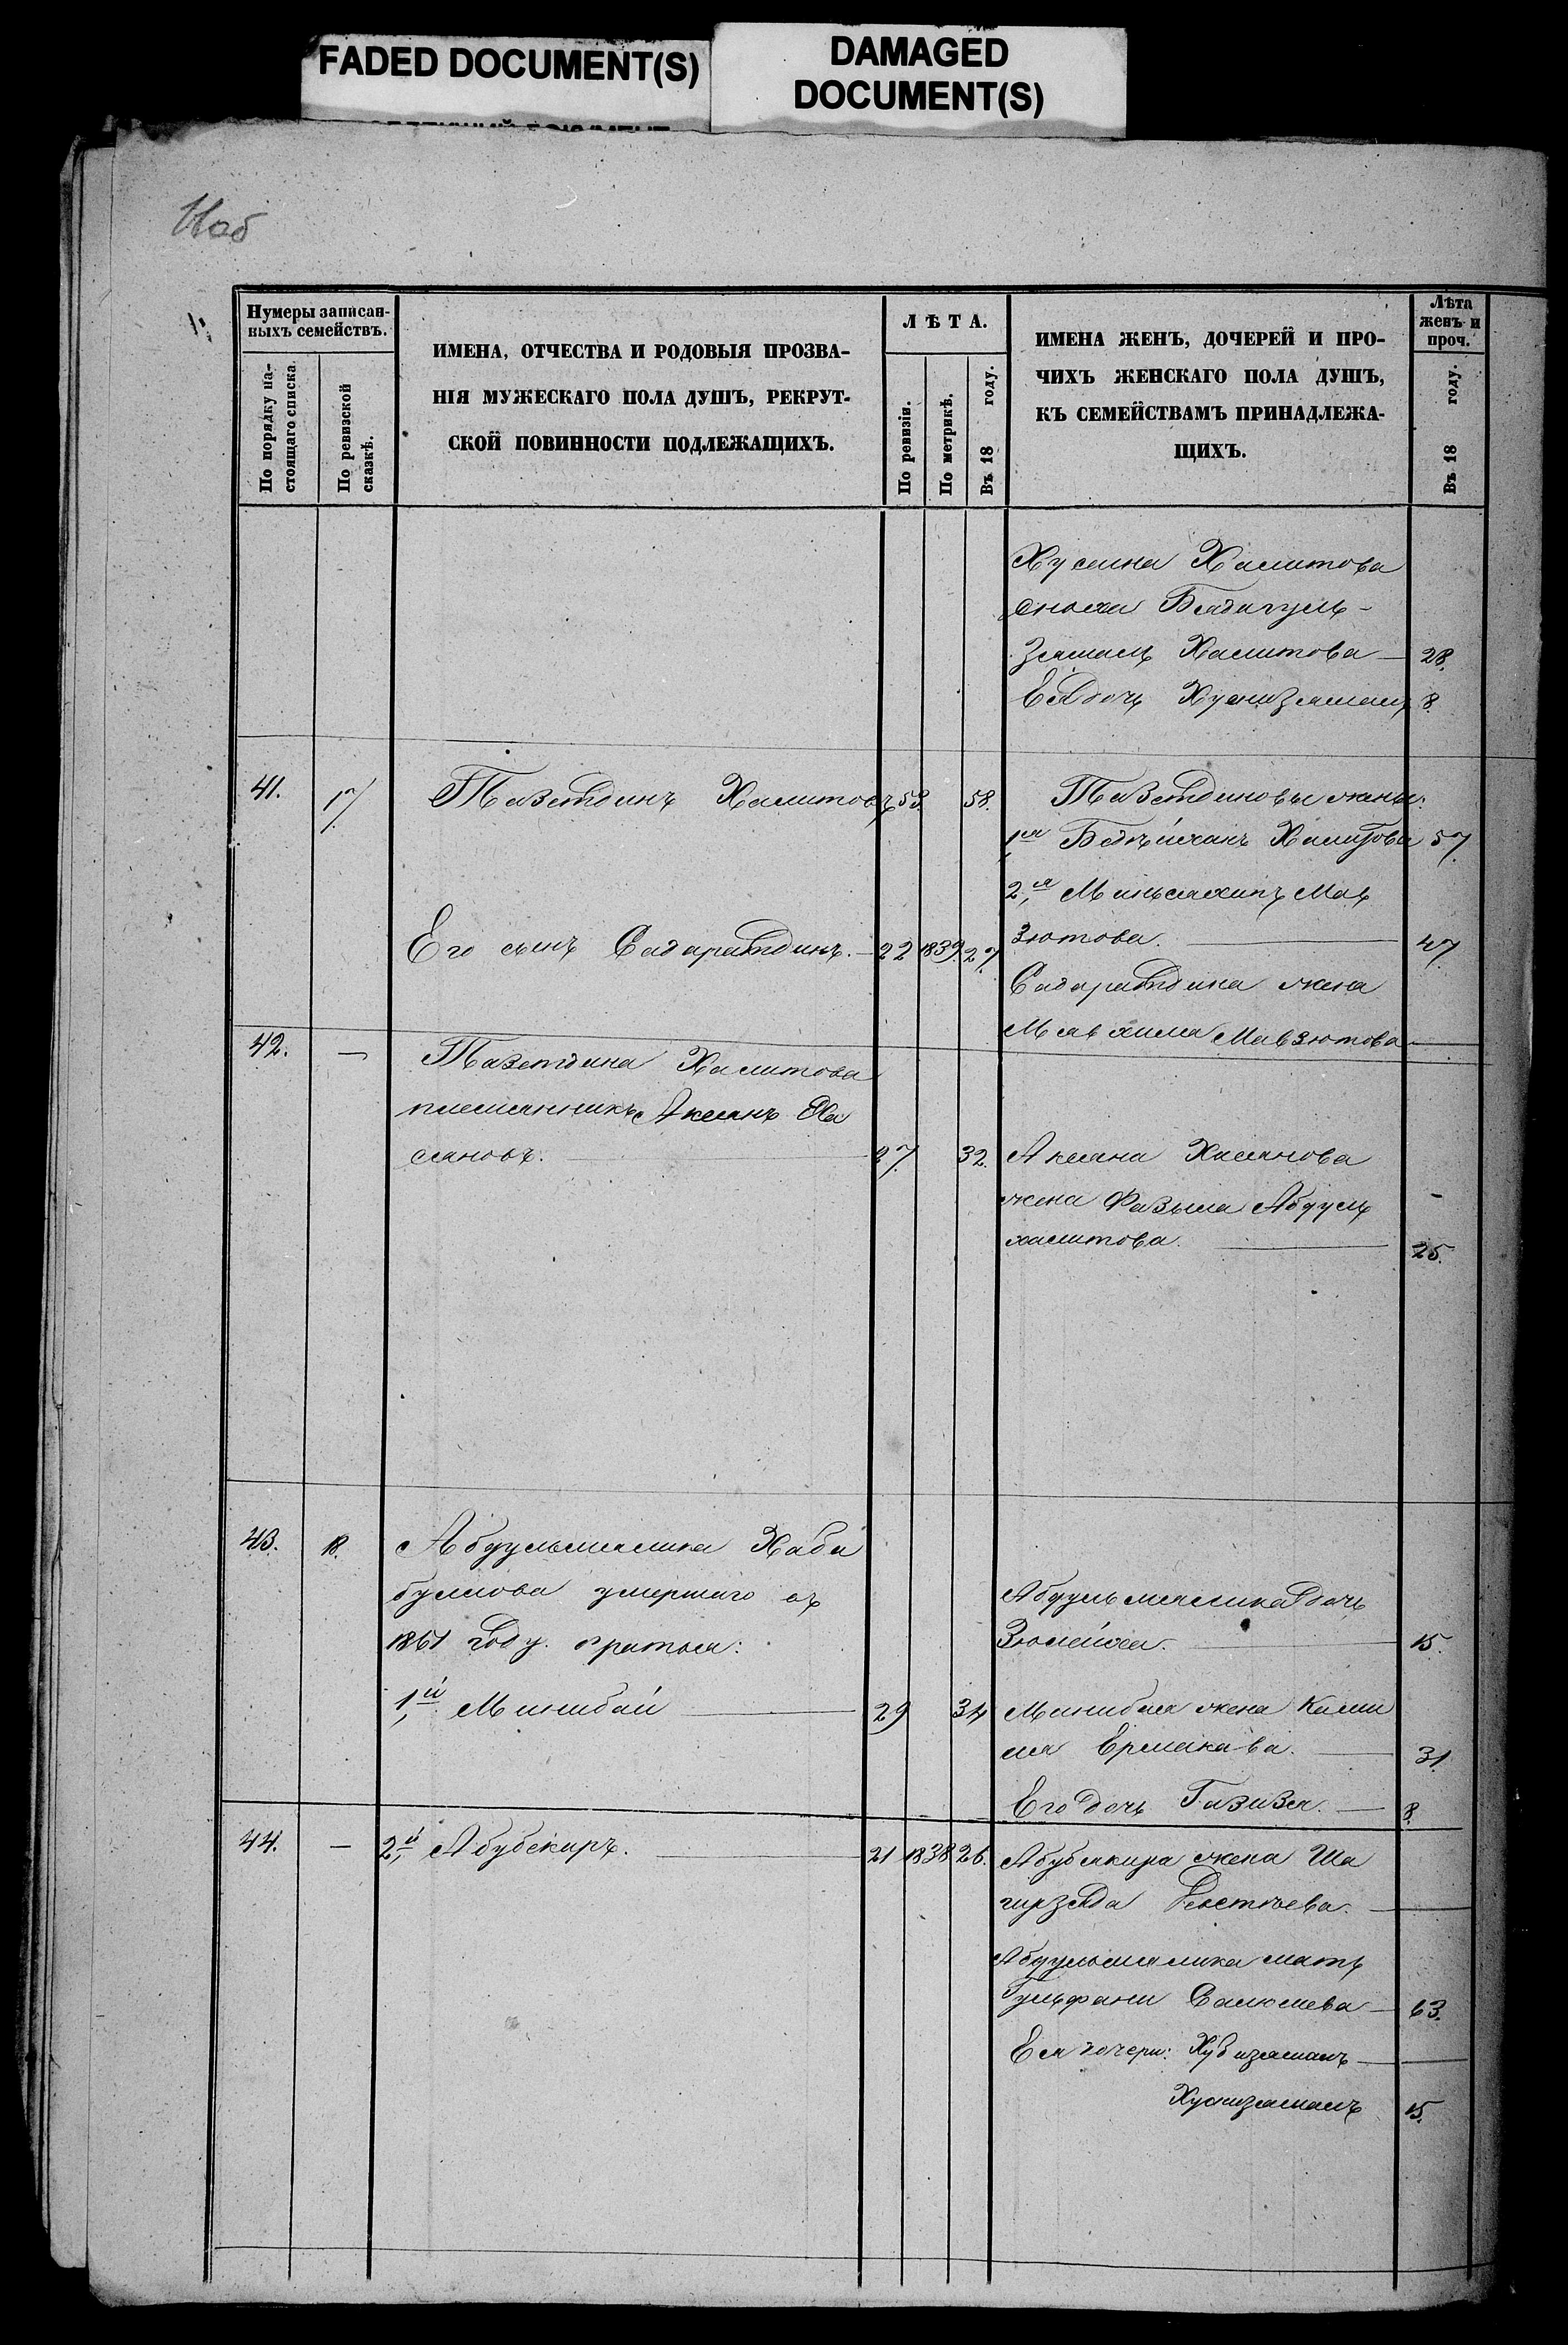 FADED DOCUMENT(S)
DAMAGED
DOCUMENT(S)
Наб
Нумеры записан-
ныхъ семействъ.
По порядку на-
стоящаго списка.
По ревизской
сказкѣ.
ИМЕНА, ОТЧЕСТВА И РОДОВЫЯ ПРОЗВА-
НІЯ МУЖЕСКАГО ПОЛА ДУШЪ, РЕКРУТ-
СКОЙ ПОВИННОСТИ ПОДЛЕЖАЩИХЪ.
ЛѢТА.
По ревизіи.
По метрикѣ.
Въ 18 году.
ИМЕНА ЖЕНЪ, ДОЧЕРЕЙ И ПРО-
ЧИХЪ ЖЕНСКАГО ПОЛА ДУШЪ,
КЪ СЕМЕЙСТВАМЪ ПРИНАДЛЕЖА-
ЩИХЪ.
Лѣта
женъ и
проч.
Въ 18 году.
Хусаина Халитова
сноха Бядигуль-
зямалъ Халитова — 28.
Ея дочь Хуснизямалъ 8.
41. 17. Тазетдинъ Халитовъ 58. 58. Тазетдиновы жены:
1я Халитова 57.
2,я Мав
Его сынъ Садаратдинъ. — 22 1839. 27. зютова. — 47.
Садаратдина жена
Мавзютова —
42. — Тазетдина Халитова
племянникъ Аксанъ Ха
сановъ. — 27. 32. Аксана Хасанова
жена Фазыла Абдулъ
халитова. — 25.
43. 18. Абдульмялика Хаби
буллова умершаго въ
1861 году. братья:
Абдульмялика дочь
Зюлейха. — 15.
1,й Минибай — 29 34 Минибая жена Ками
ля Ермакова. — 31.
Его дочь Газизя. — 8.
44. — 2,й Абубекиръ. — 21 1838 26. Абубякира жена Ша
гирзяда —
Абдульмялика мать
Гульфани Валюлева — 63.
Ея дочери: Хубизямалъ —
Хуснизямалъ 15.